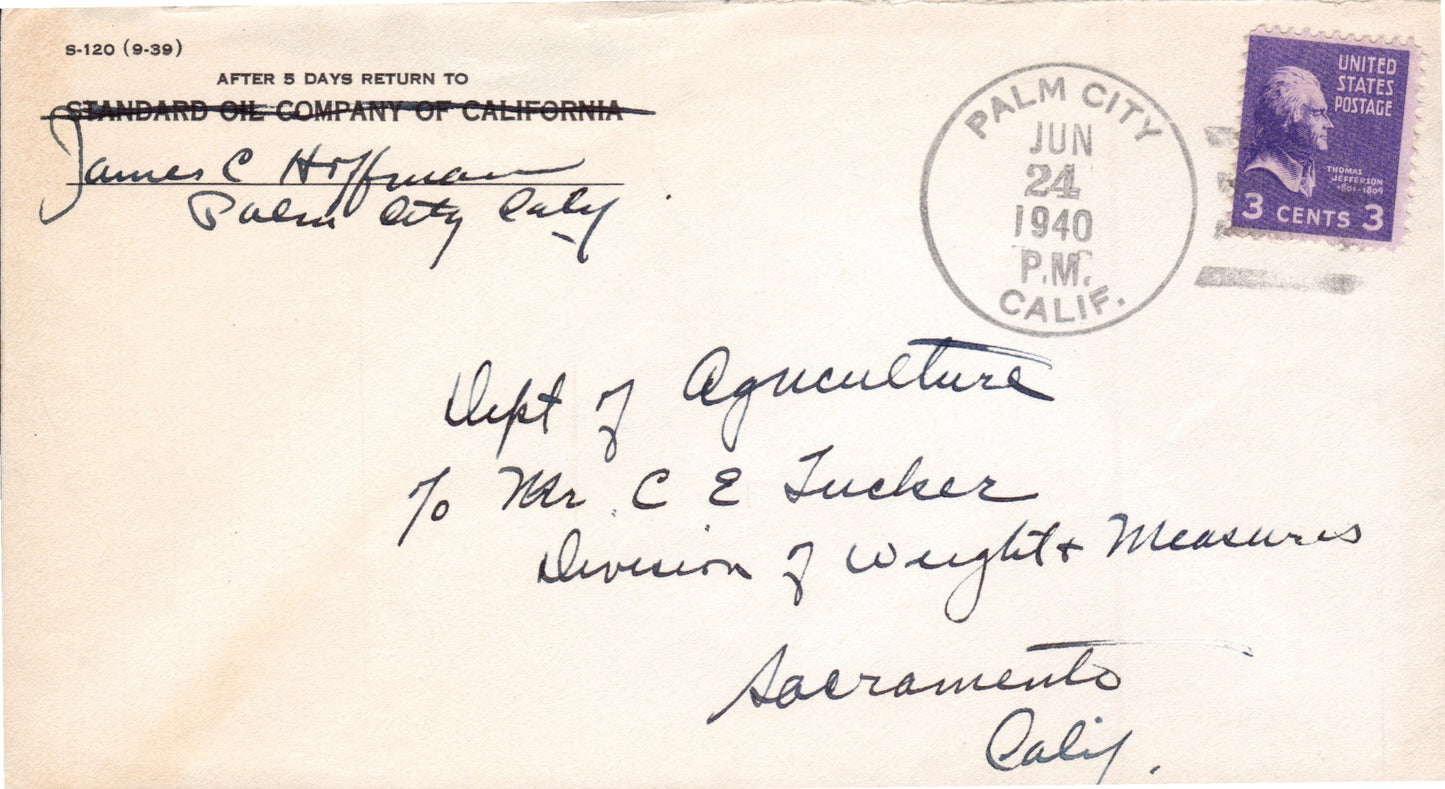 S-120 (9-39)
AFTER 5 DAYS RETURN TO
STANDARD OIL COMPANY OF CALIFORNIA
James C Hoffman
Palm City Calif
PALM CITY
JUN
24
1940
P.M.
CALIF.
UNITED
STATES
POSTAGE
THOMAS
JEFFERSON
1801-1809
3 CENTS 3
Dept of Agriculture
℅ Mr. C E Tucker
Division of Weight & Measures
Sacramento
Calif.